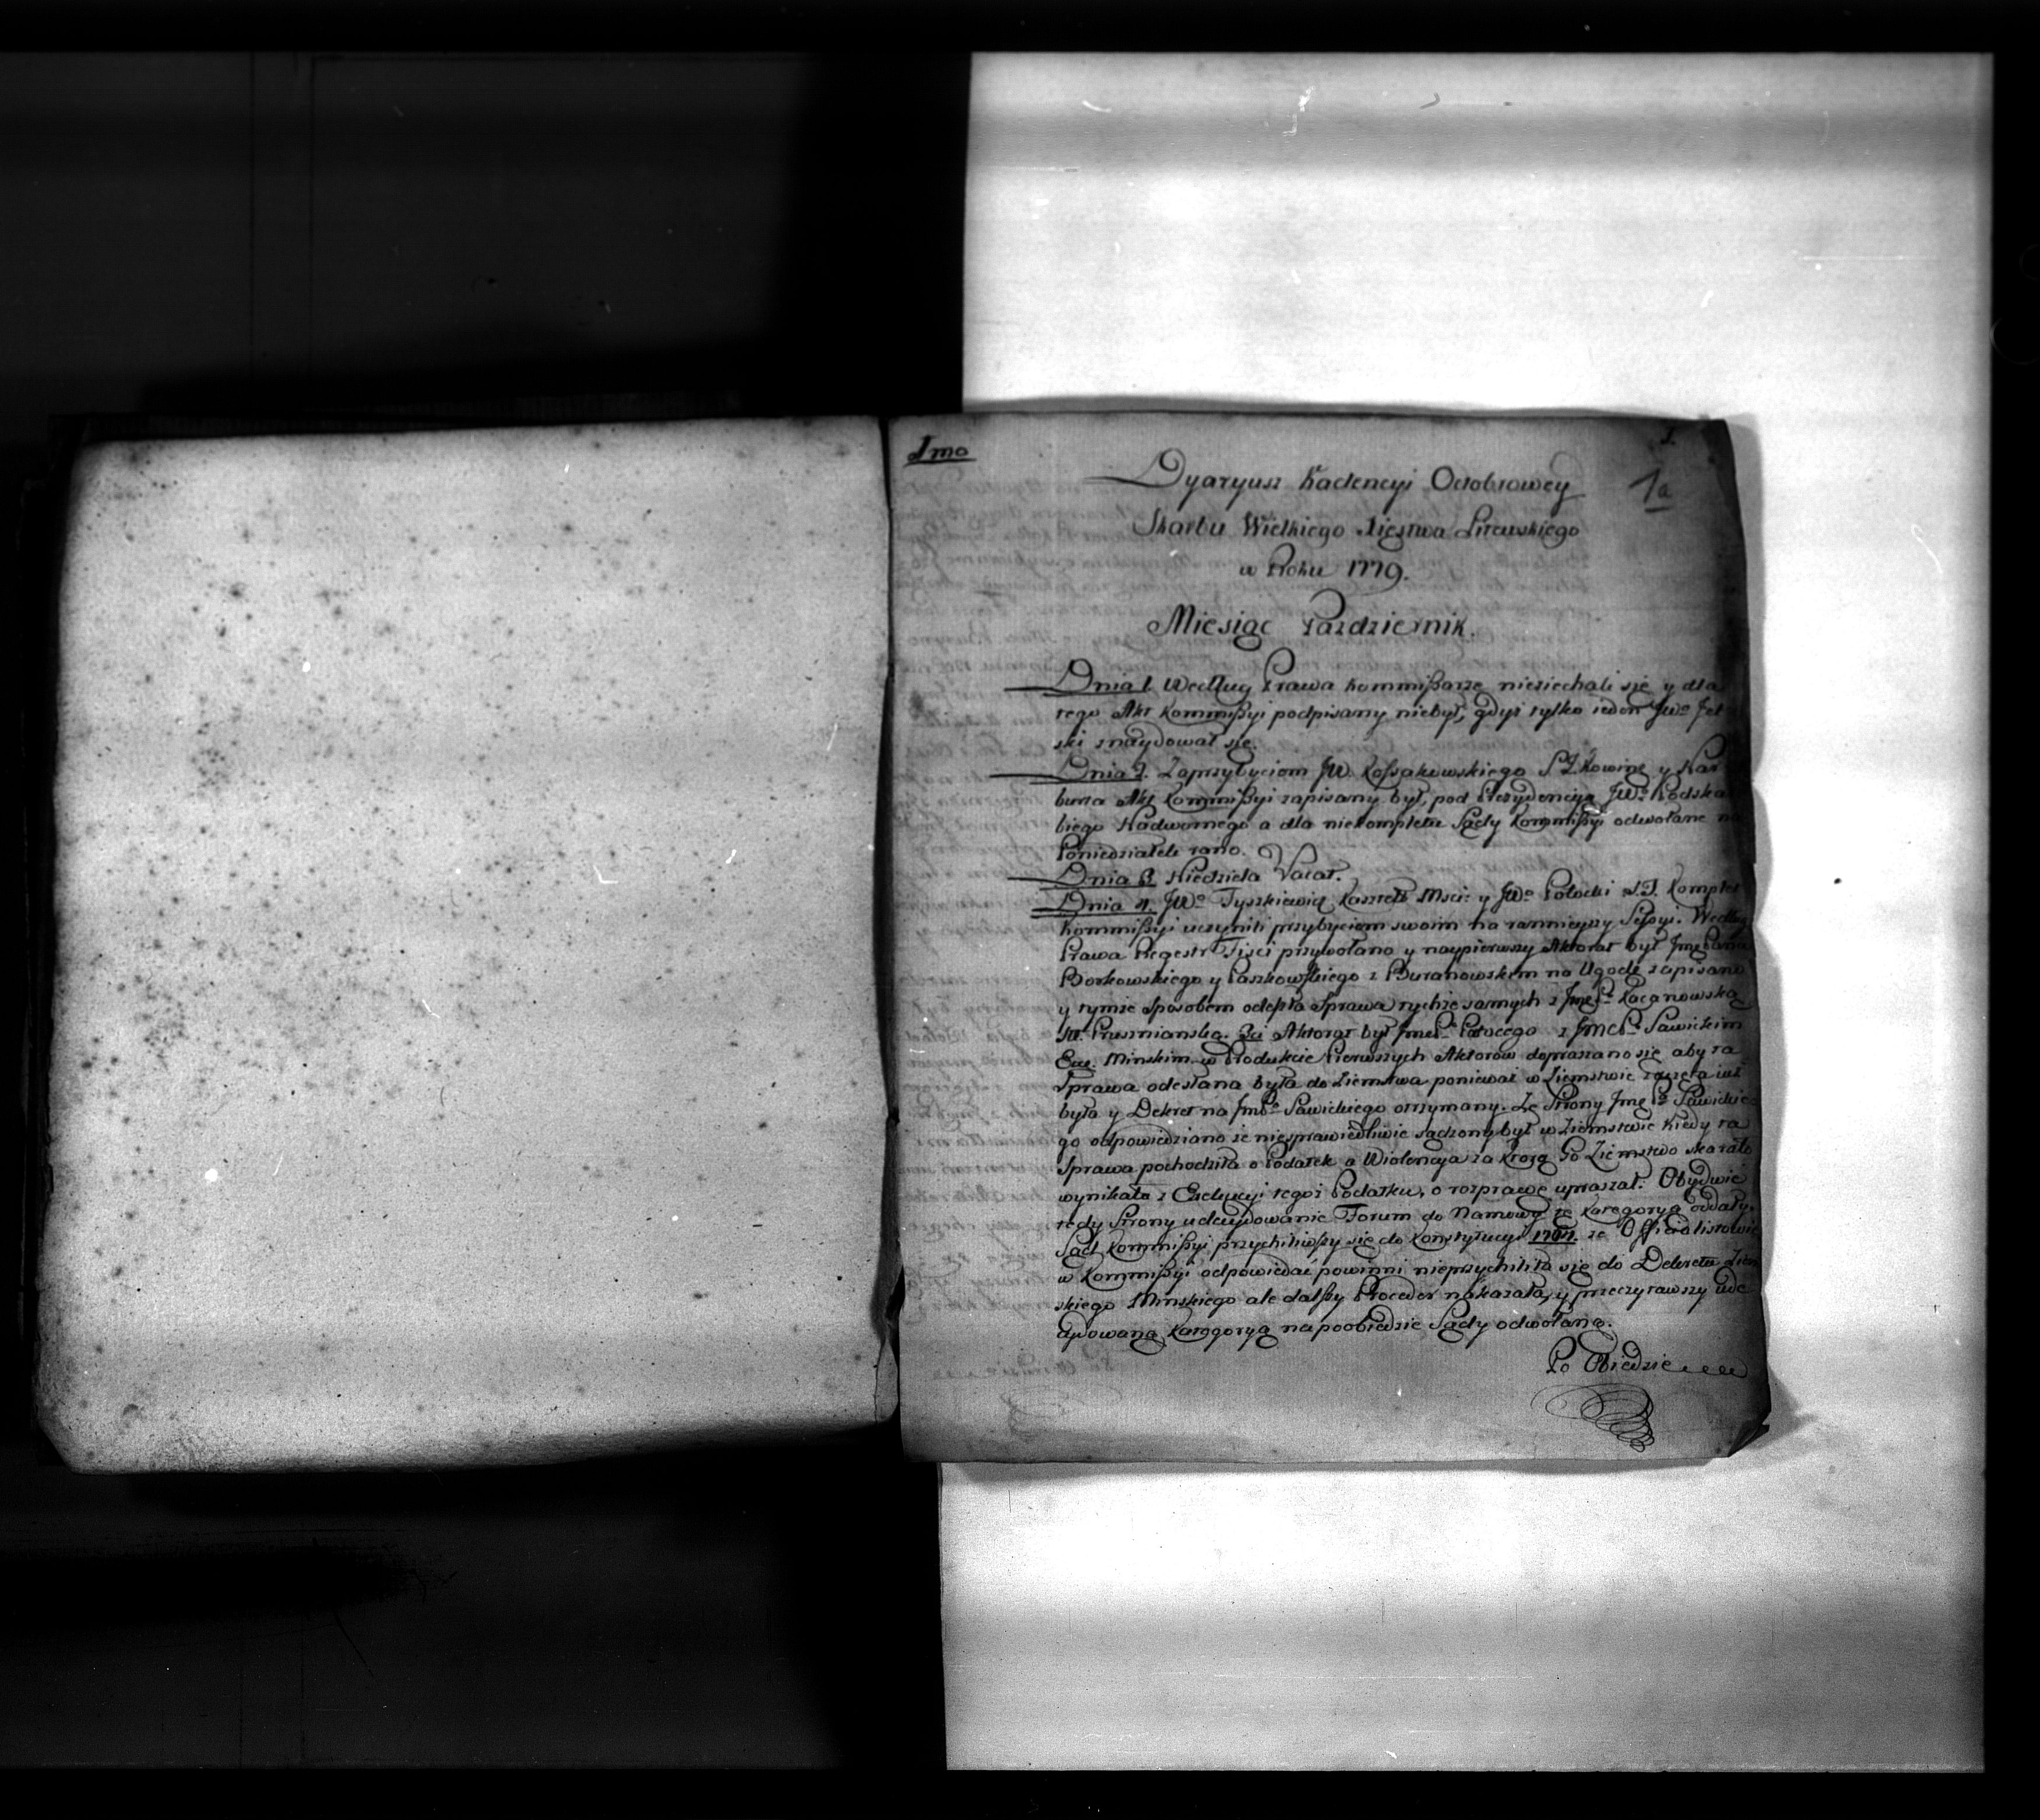 1mo
1.
1a
Dyaryusz Kadencyi Octobrowey
Skarbu Wielkiego Xięstwa Litewskiego
w Roku 1779.
Miesiąc Pazdziernik.
Dnia 1. Według Prawa Kommißarze nieziechali się y dla
tego Akt Kommißyi podpisany niebył, gdyż tylko ieden JWo Jel
ski znaydował się.
Dnia 2. Zaprzybyciem JW. Koſsakowskiego y Nar
buta Akt Kommißyi zapisany był, pod Prezydencyą JWo Podska
biego Nadwornego a dla niekompletu Sądy Kommißyi odwołane na
Poniedziałek rano.
Dnia 3. Niedziela Vacat.
Dnia 4. JWo Tyszkiewicz Kasztel: Msci: y JWo Potocki Komplet
Kommißyi uczynili przybyciem swoim na rannieyszy Seßyi. Według
Prawa Regestr przywołano y naypierwszy Aktorat był Jmę Pana
Borkowskiego y Paszkowskiego z Buranowskem na Ugodę zapisano
y tymże sposobem odeszła Sprawa tychże samych z Kacanowską
3ci Aktorat był z Sawickim
Exe. Minskim w Produkcie Pierwszych Aktorów dopraszano się aby ta
Sprawa odesłana była do Ziemstwa ponieważ w Ziemstwie zaczęta iuż
była y Dekret na Sawickiego otrzymany. Ze Strony Sawickie
go odpowiedziano że niesprawiedliwie sądzony był w Ziemstwie kiedy ta
Sprawa pochodziła o Podatek a Wiolencya za ktorą Go Ziemstwo skarało
wynikała z Exekucyi tegoż Podatku, o rozprawę upraszał. Obydwie
tedy Strony udecydowanie Forum do Namowy te kategoryą oddały.
Sąd Kommißyi przychiliwſzy się do Konstytucyi że Officialistowie
w Kommißyi odpowiedać powinni nieprzychiliła się do Dekretu Ziem
skiego Minskiego ale dalſzy Proceder nakazała, y przeczytawszy ude
cydowaną kategoryą na poobiedzie Sądy odwołane.
Po Obiedzie